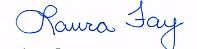 Laura Fay